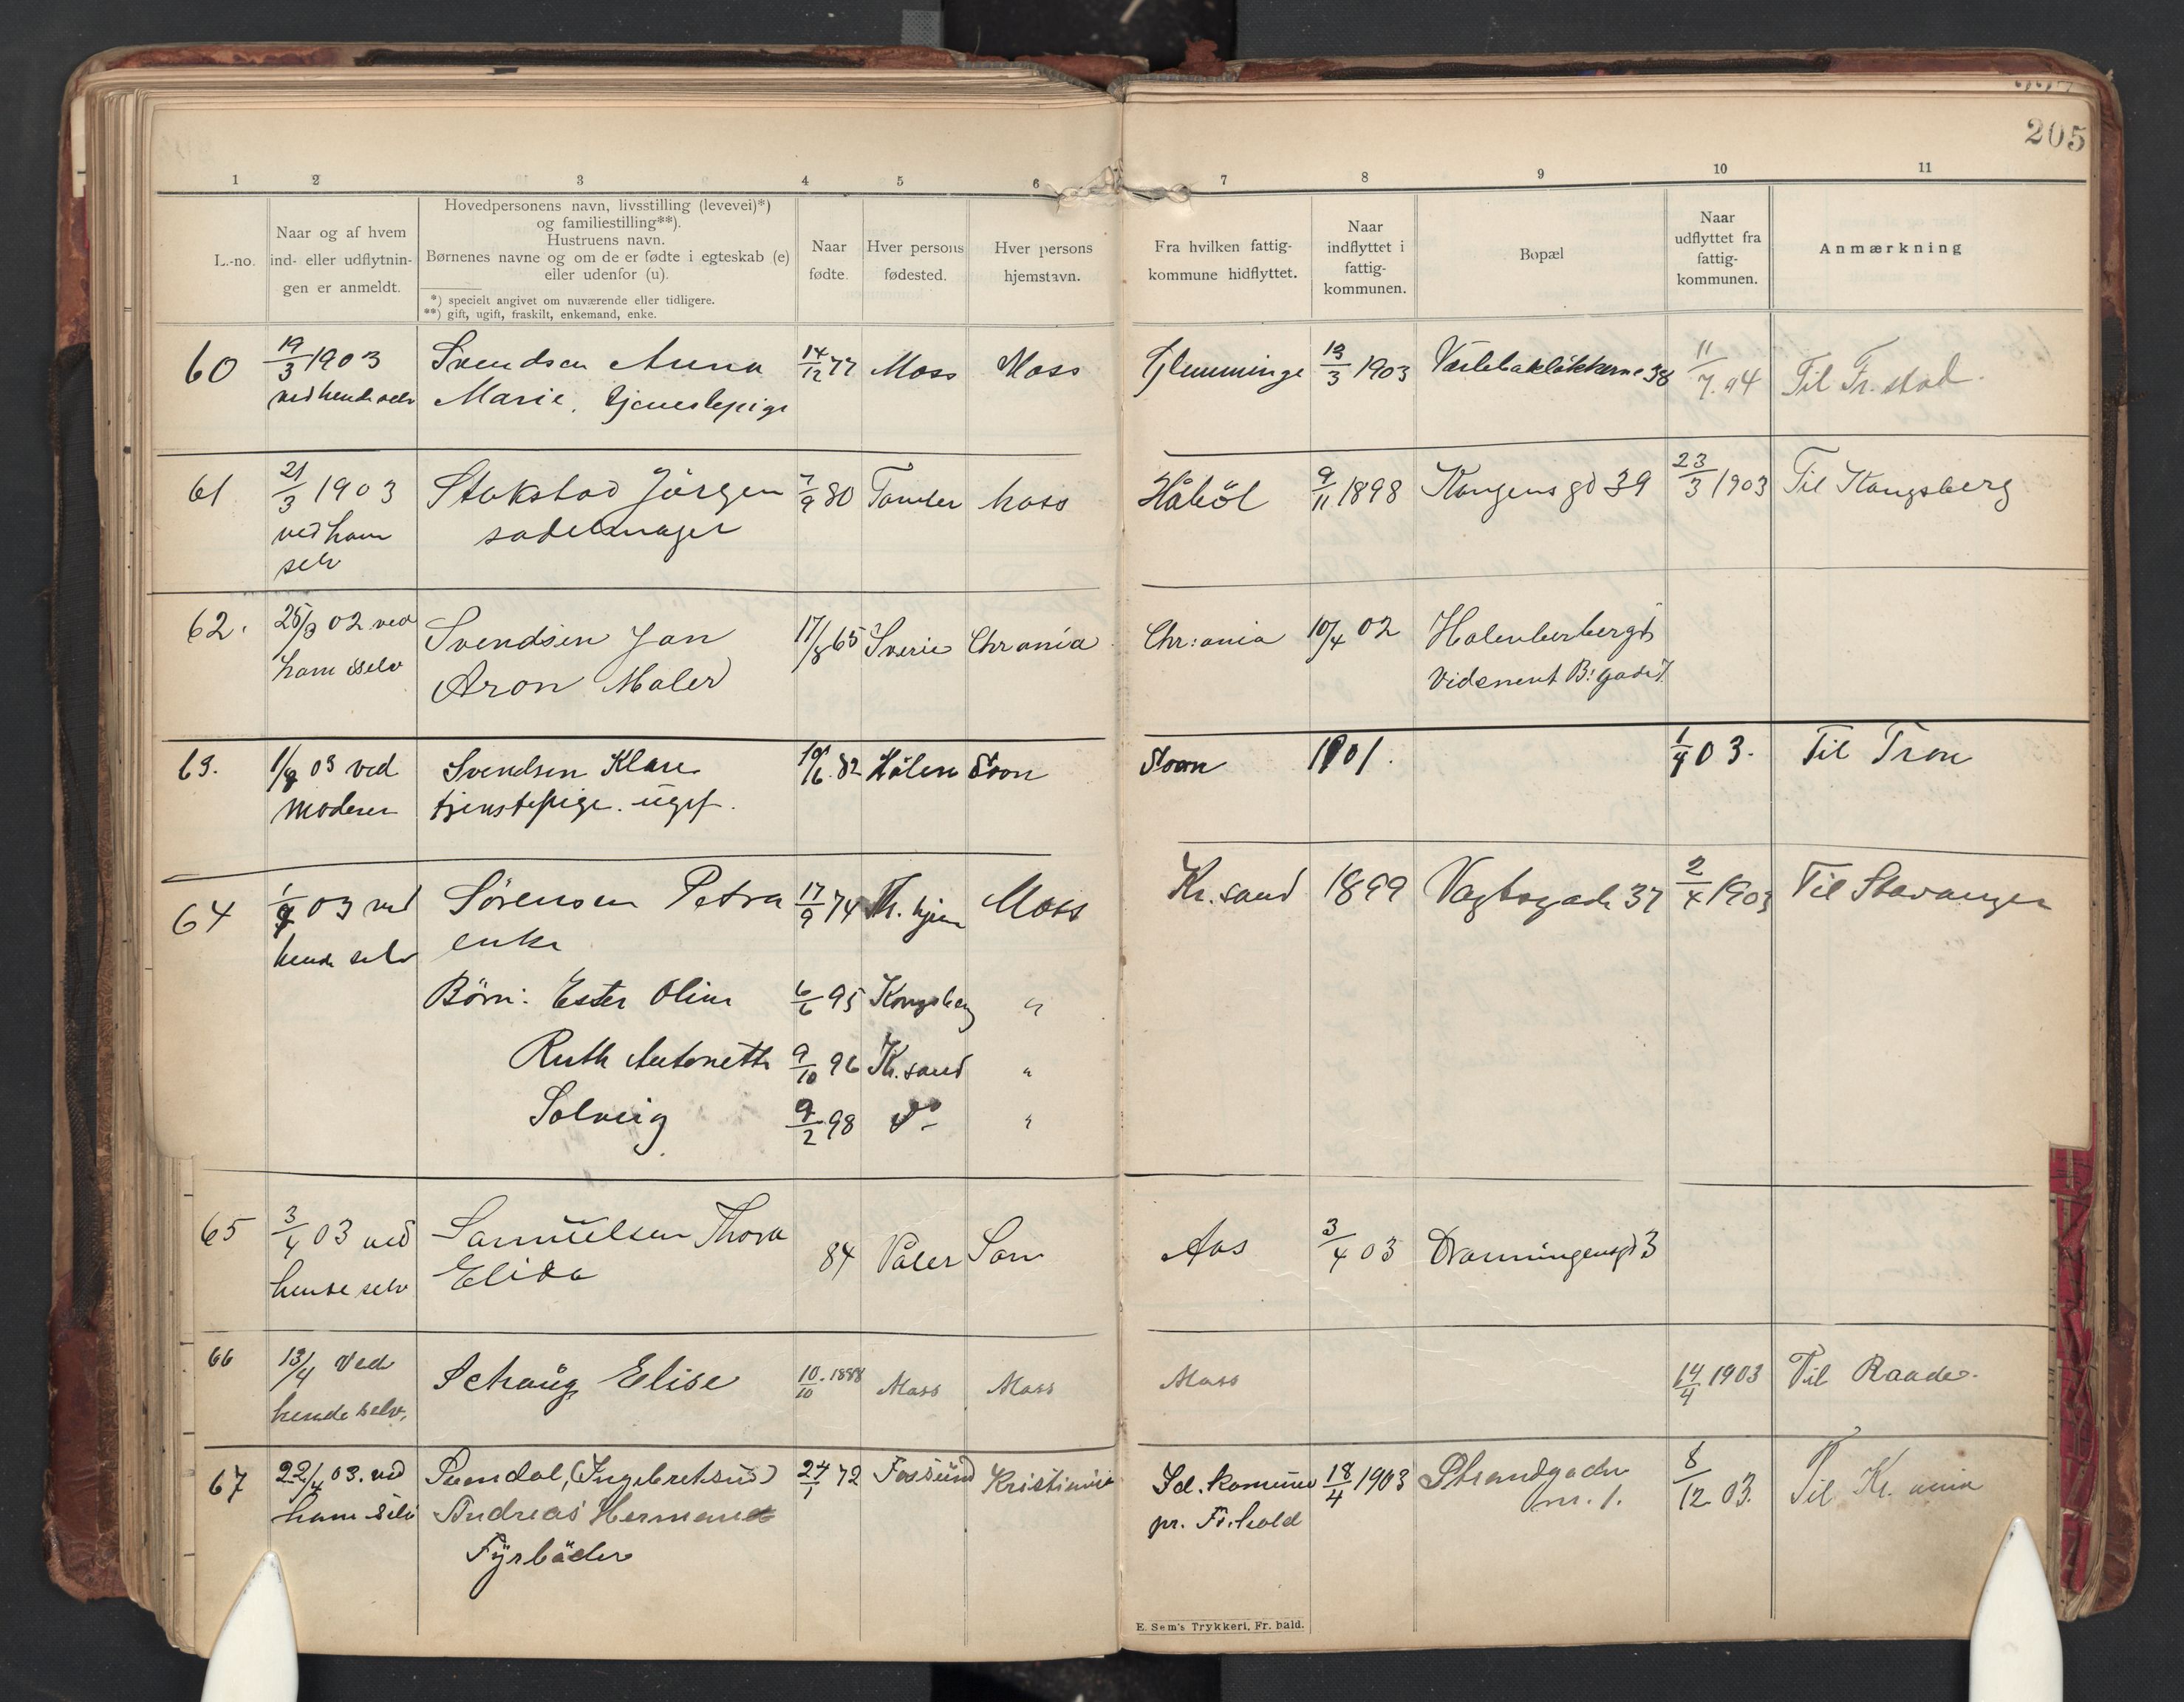 205
1 2 3 4 5 6 7 8 9 10 11
L.-no.
Naar og af hvem
ind- eller udflytnin-
gen er anmeldt.
Hovedpersonens navn, livsstilling (levevei)*)
og familiestilling**).
Hustruens navn.
Børnenes navne og om de er fødte i egteskab (e)
eller udenfor (u).
*) specielt angivet om nuværende eller tidligere.
**) gift, ugift, fraskilt, enkemand, enke.
Naar
fødte.
Hver persons
fødested.
Hver persons
hjemstavn.
Fra hvilken fattig-
kommune hidflyttet.
Naar
indflyttet i
fattig-
kommunen.
Bopæl
Naar
udflyttet fra
fattig-
kommunen.
Anmærkning
60 19/3 1903 Svendsen Anna 14/12 77 Moss Moss Glemminge 13/3 1903 Værlebakløkkerne 38 11/7.94 Til Fr.stad.
ved hende selv Marie, tjenestepige
61 21/3 1903 Stokstad Jørgen 7/9 80 Tomter Moss Håböl 9/11 1898 Kongensgd 39 23/3 1903 Til Kongsberg
ved ham sadelmager
selv
62. 25/3 02 ved Svendsen Jan 17/8 65 Sverie Chrania Chr:ania 10/4 02
ham selv Aron Maler
63. 03 ved Svendsen Klara 82 Hölen Soon Soon 1901. 03. Til Tron
Moderen tjenstepige. ugift.
64 03 ved Sørensen Petra 17/9 74 Moss Kr.sand 1899 Vogtsgade 37 2/4 1903 Til Stavanger
hende selv enke
Børn: Ester Oline 6/6 95 Kongsberg "
Ruth Antonette 9/10 96 Kr.sand "
Solveig 9/2 98 do "
65 3/4 03 ved Samuelsen Thora 84 Våler Son Aas 3/4 03 Dronningensgd 3
hende selv Elida
66 13/4 Ved Schaug Elise 10/10.1888 Moss Moss Moss 14/4 1903 Til Raade.
hende selv.
67 22/4 03. ved (Ingebretsen) 24/1 72 Fossund Kristiania kommune 18/4 1903 Strandgaden 8/12 03. Til Kr.ania
ham selv Andreas Herman pr. Fr.hald nr. 1.
Fyrböder
E. Sem's Trykkeri, Fr. hald.